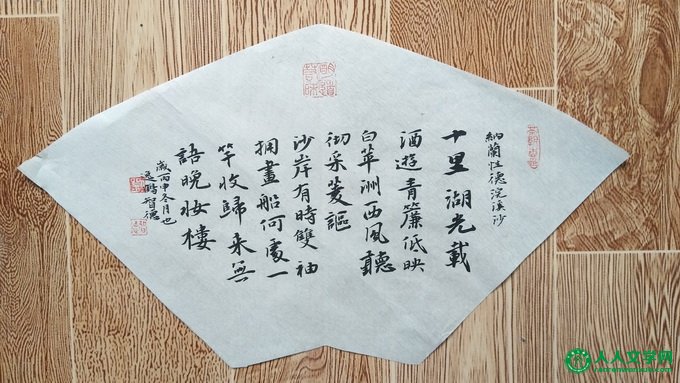 納蘭性德浣溪沙
十里湖光載
酒遊青簾低映
白苹洲西風聽
彻采菱謳
沙岸有時雙袖
擁畫船何處一
竿收歸來無
語晚妝樓
歲丙申冬月也
智德
人人文学网